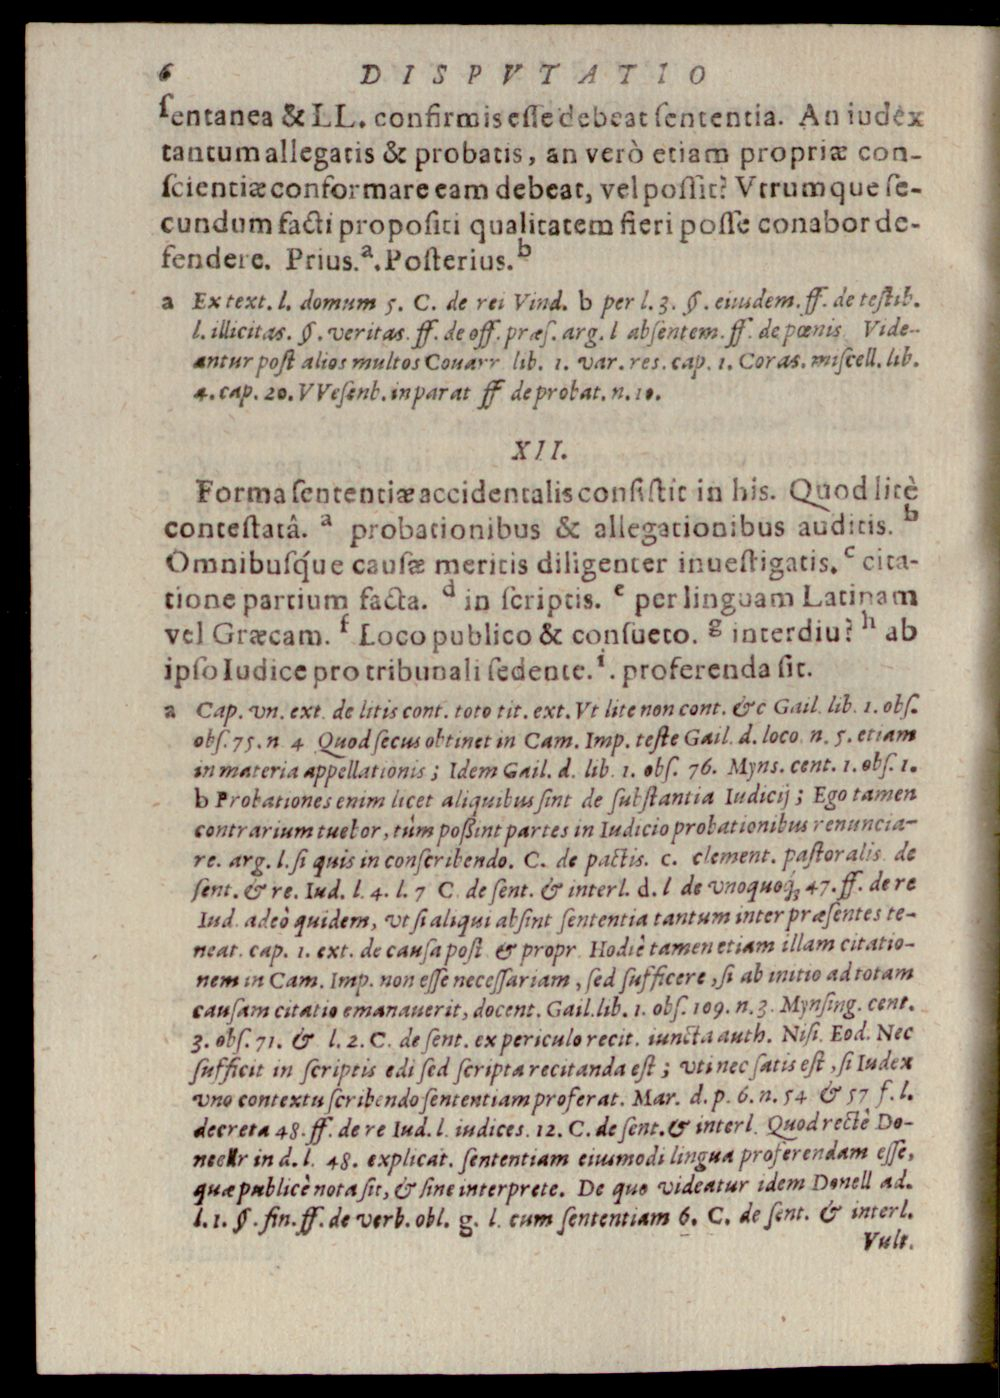 6 DISPVTATIO
ſentanea & LL. confirmis eſſe debeat ſententia. An iudex
tantum allegatis & probatis, an verò etiam propriæ con-
ſcientiæ conformare eam debeat, vel poſſit? Vtrumque ſe-
cundum facti propoſiti qualitatem fieri poſſe conabor de-
fendere. Prius.a. Poſterius.b
a Ex text. l. domum 5. C. de rei Vind. b per l. 3. §. eiuſdem. ff. de teſtib.
l. illicitas. §. veritas. ff. de off. præſ. arg. l abſentem. ff. de pœnis. Vide-
antur poſt alios multos Couarr lib. 1. var. res. cap. 1. Coras. miſcell. lib.
4. cap. 20. VVeſenb. in parat ff de probat. n. 10.
XII.
Forma ſententiæ accidentalis conſiſtit in his. Quod litè
conteſtatâ. a probationibus & allegationibus auditis. b
Omnibuſq́ue cauſæ meritis diligenter inueſtigatis. c cita-
tione partium facta. d in ſcriptis. e per linguam Latinam
vel Græcam. f Loco publico & conſueto. g interdiu? h ab
ipſo Iudice pro tribunali ſedente. i. proferenda ſit.
a Cap. vn. ext. de litis cont. toto tit. ext. Vt lite non cont. &c Gail. lib. 1. obſ.
obſ. 75. n 4 Quod ſecus obtinet in Cam. Imp. teſte Gail. d. loco. n. 5. etiam
in materia appellationis; Idem Gail. d. lib. 1. obſ. 76. Myns. cent. 1. obſ. 1.
b Probationes enim licet aliquibus ſint de ſubſtantia Iudicij; Ego tamen
contrarium tuebor, túm poßint partes in Iudicio probationibus renuncia-
re. arg. l. ſi quis in conſcribendo. C. de pactis. c. clement. paſtoralis. de
ſent. & re. Iud. l. 4. l. 7 C. de ſent. & interl. d. l de vnoquoq́; 47. ff. de re
Iud. adeò quidem, vt ſi aliqui abſint ſententia tantum inter præſentes te-
neat. cap. 1. ext. de cauſa poſſ & propr. Hodiè tamen etiam illam citatio-
nem in Cam. Imp. non eſſe neceſſariam, ſed ſufficere, ſi ab initio ad totam
cauſam citatio emanauerit, docent. Gail. lib. 1. obſ. 109. n. 3. Mynſing. cent.
3. obſ. 71. & l. 2. C. de ſent. ex periculo recit. iuncta auth. Niſi. Eod. Nec
ſufficit in ſcriptis edi ſed ſcripta recitanda eſt; vti nec ſatis eſt, ſi Iudex
vno contextu ſcribendo ſententiam proferat. Mar. d. p. 6. n. 54 & 57 f. l.
decreta 48. ff. de re Iud. l. iudices. 12. C. de ſent. & interl. Quod rectè Do-
nellr in d. l. 48. explicat. ſententiam eiuſmodi lingua proferendam eſſe,
quæ publicè nota ſit, & ſine interprete. De quo videatur idem Donell ad.
l. 1. §. fin. ff. de verb. obl. g. l. cum ſententiam 6. C. de ſent. & interl.
Vult.